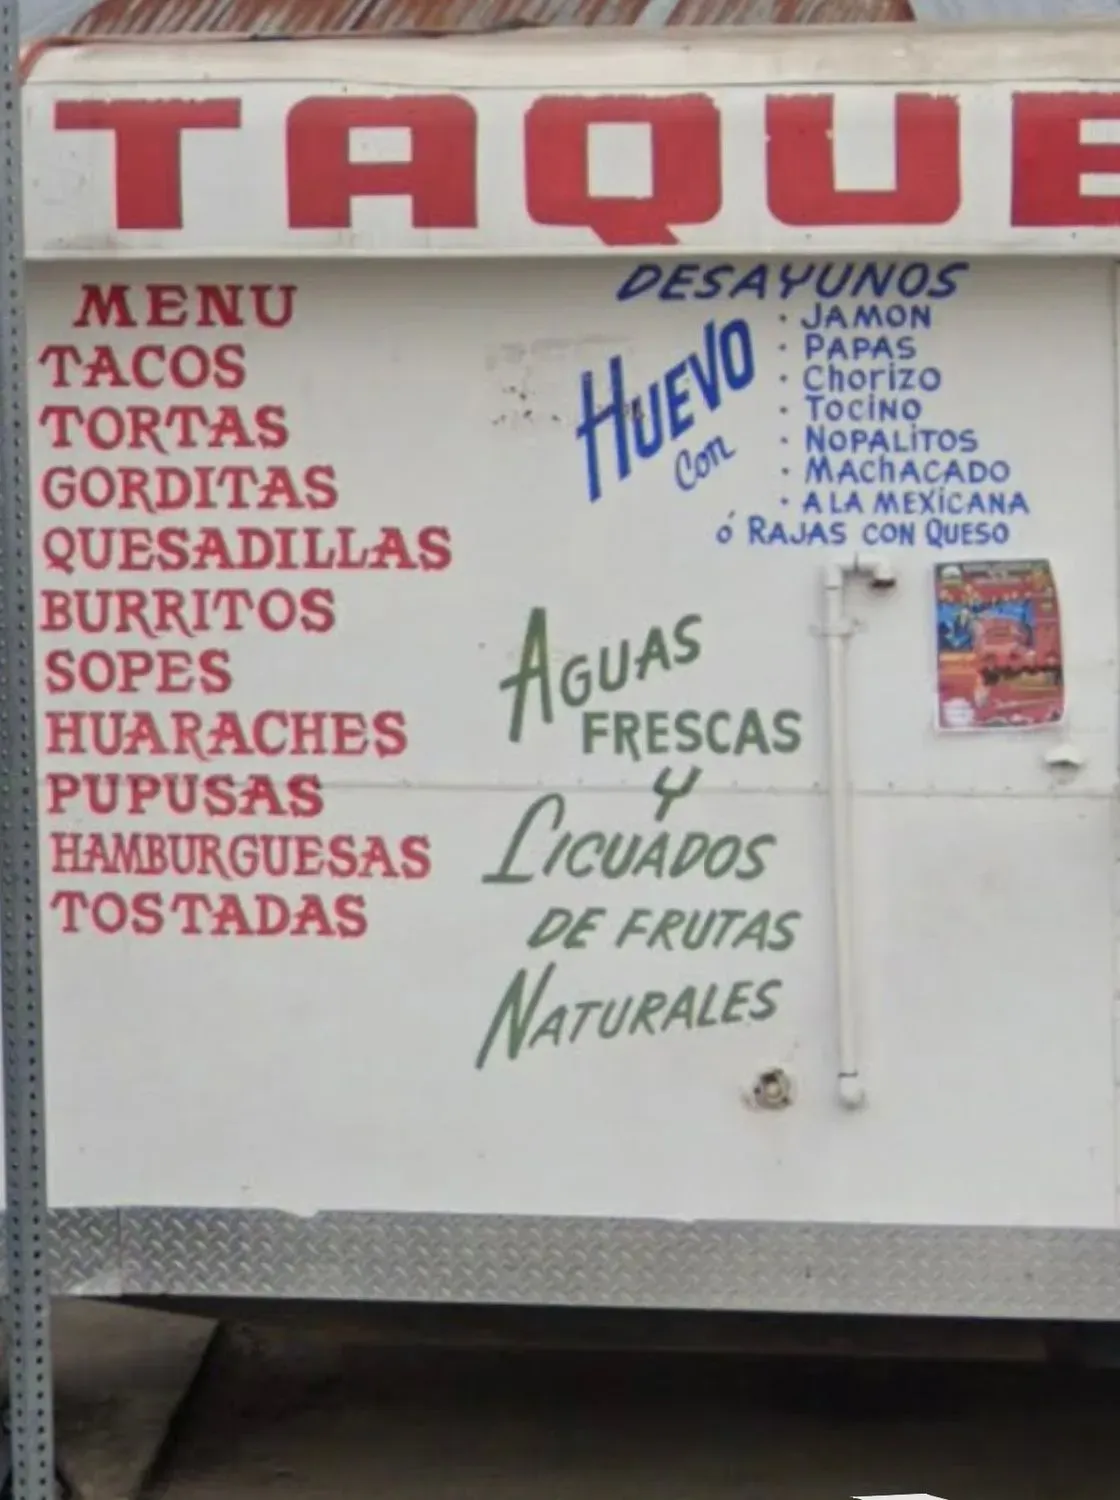 TAQUE
MENU
TACOS
TORTAS
GORDITAS
QUESADILLAS
BURRITOS
SOPES
HUARACHES
PUPUSAS
HAMBURGUESAS
TOSTADAS
DESAYUNOS
HUEVO
Con
· JAMON
· PAPAS
· Chorizo
· TOCINO
· NOPALiTOS
· MAChACADO
· A LA MEXiCANA
ó RAJAS CON QUESO
AGUAS
FRESCAS
Y
LICUADOS
DE FRUTAS
NATURALES